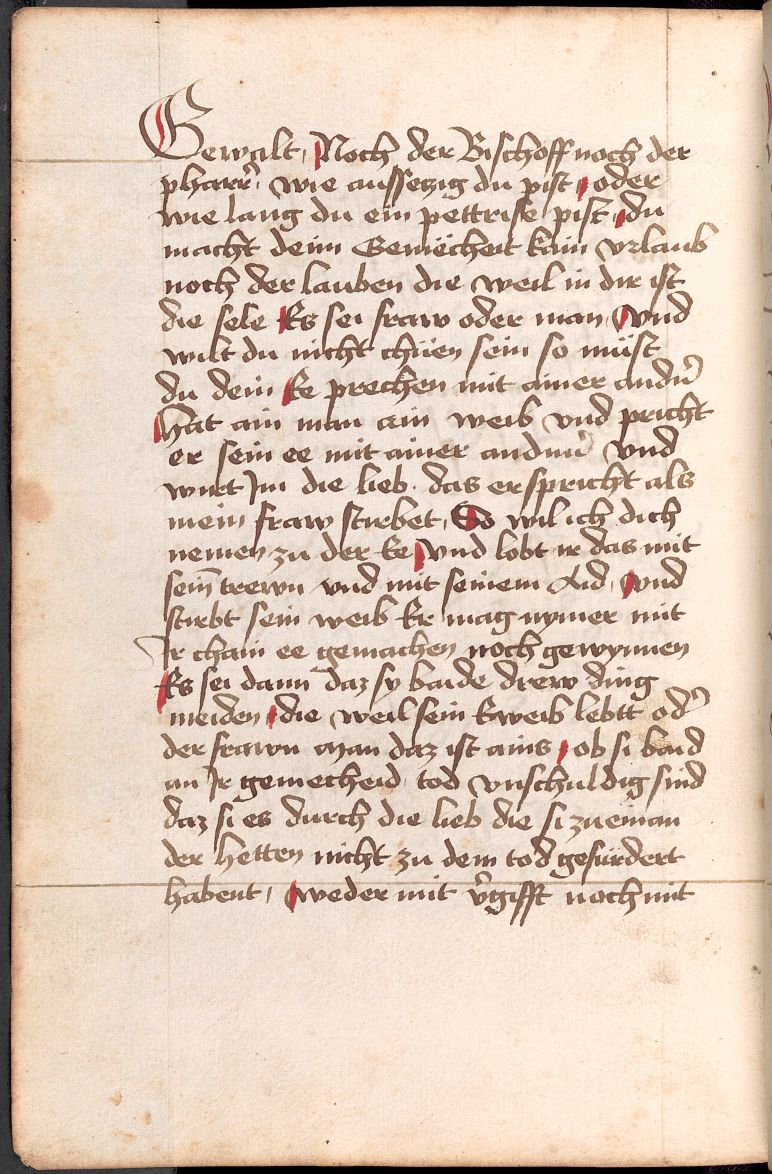 Gewalt, Noch der Bischoff noch der
pharr̄. wie aussetzig du pist, oder
wie lang du ein pettrise pist, du
macht deim Gemëcheit kain vrlaub
noch der lauben die weil in dir ist
die sele Es sei fraw oder man, Vnd
wilt du nicht chüen sein so müst
du dein Ee prechen mit ainer andn̄
Hat ain man ain weib vnd pricht
er sein ee mit ainer andnn̄ vnd
wirt Im die lieb. das er spricht als
mein fraw stirbet, So wil ich dich
nemen zu der Ee Vnd lobt ir das mit
sein̄ trewn vnd mit seinem Aid, vnd
stirbt sein weib Er mag nymer mit
Ir chain ee gemachen noch gewynnen
Es sei dann daz sy baide drew ding
meiden, die weil sein Eweib lebtt od̄
der frawn man daz ist ains, ob si baid
an Ir gemecheid tod vnschuldig sind
daz si es durch die lieb die si zueinan
der hetten nicht zu dem tod gefürdert
habent, weder mit v̄gifft noch mit